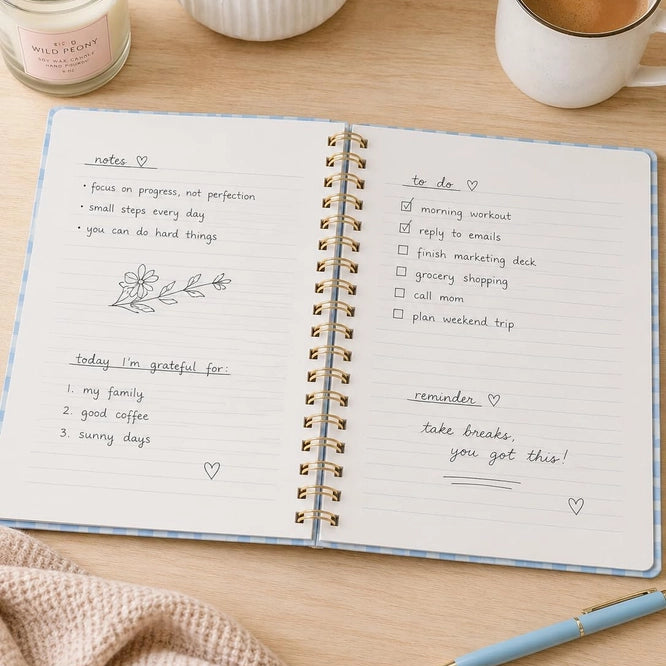 WILD PEONY
SOY WAX CANDLE
HAND POURED
notes ♡
• focus on progress, not perfection
• small steps every day
• you can do hard things
today I'm grateful for:
1. my family
2. good coffee
3. sunny days
♡
to do ♡
☑ morning workout
☑ reply to emails
☐ finish marketing deck
☐ grocery shopping
☐ call mom
☐ plan weekend trip
reminder ♡
take breaks,
you got this!
♡